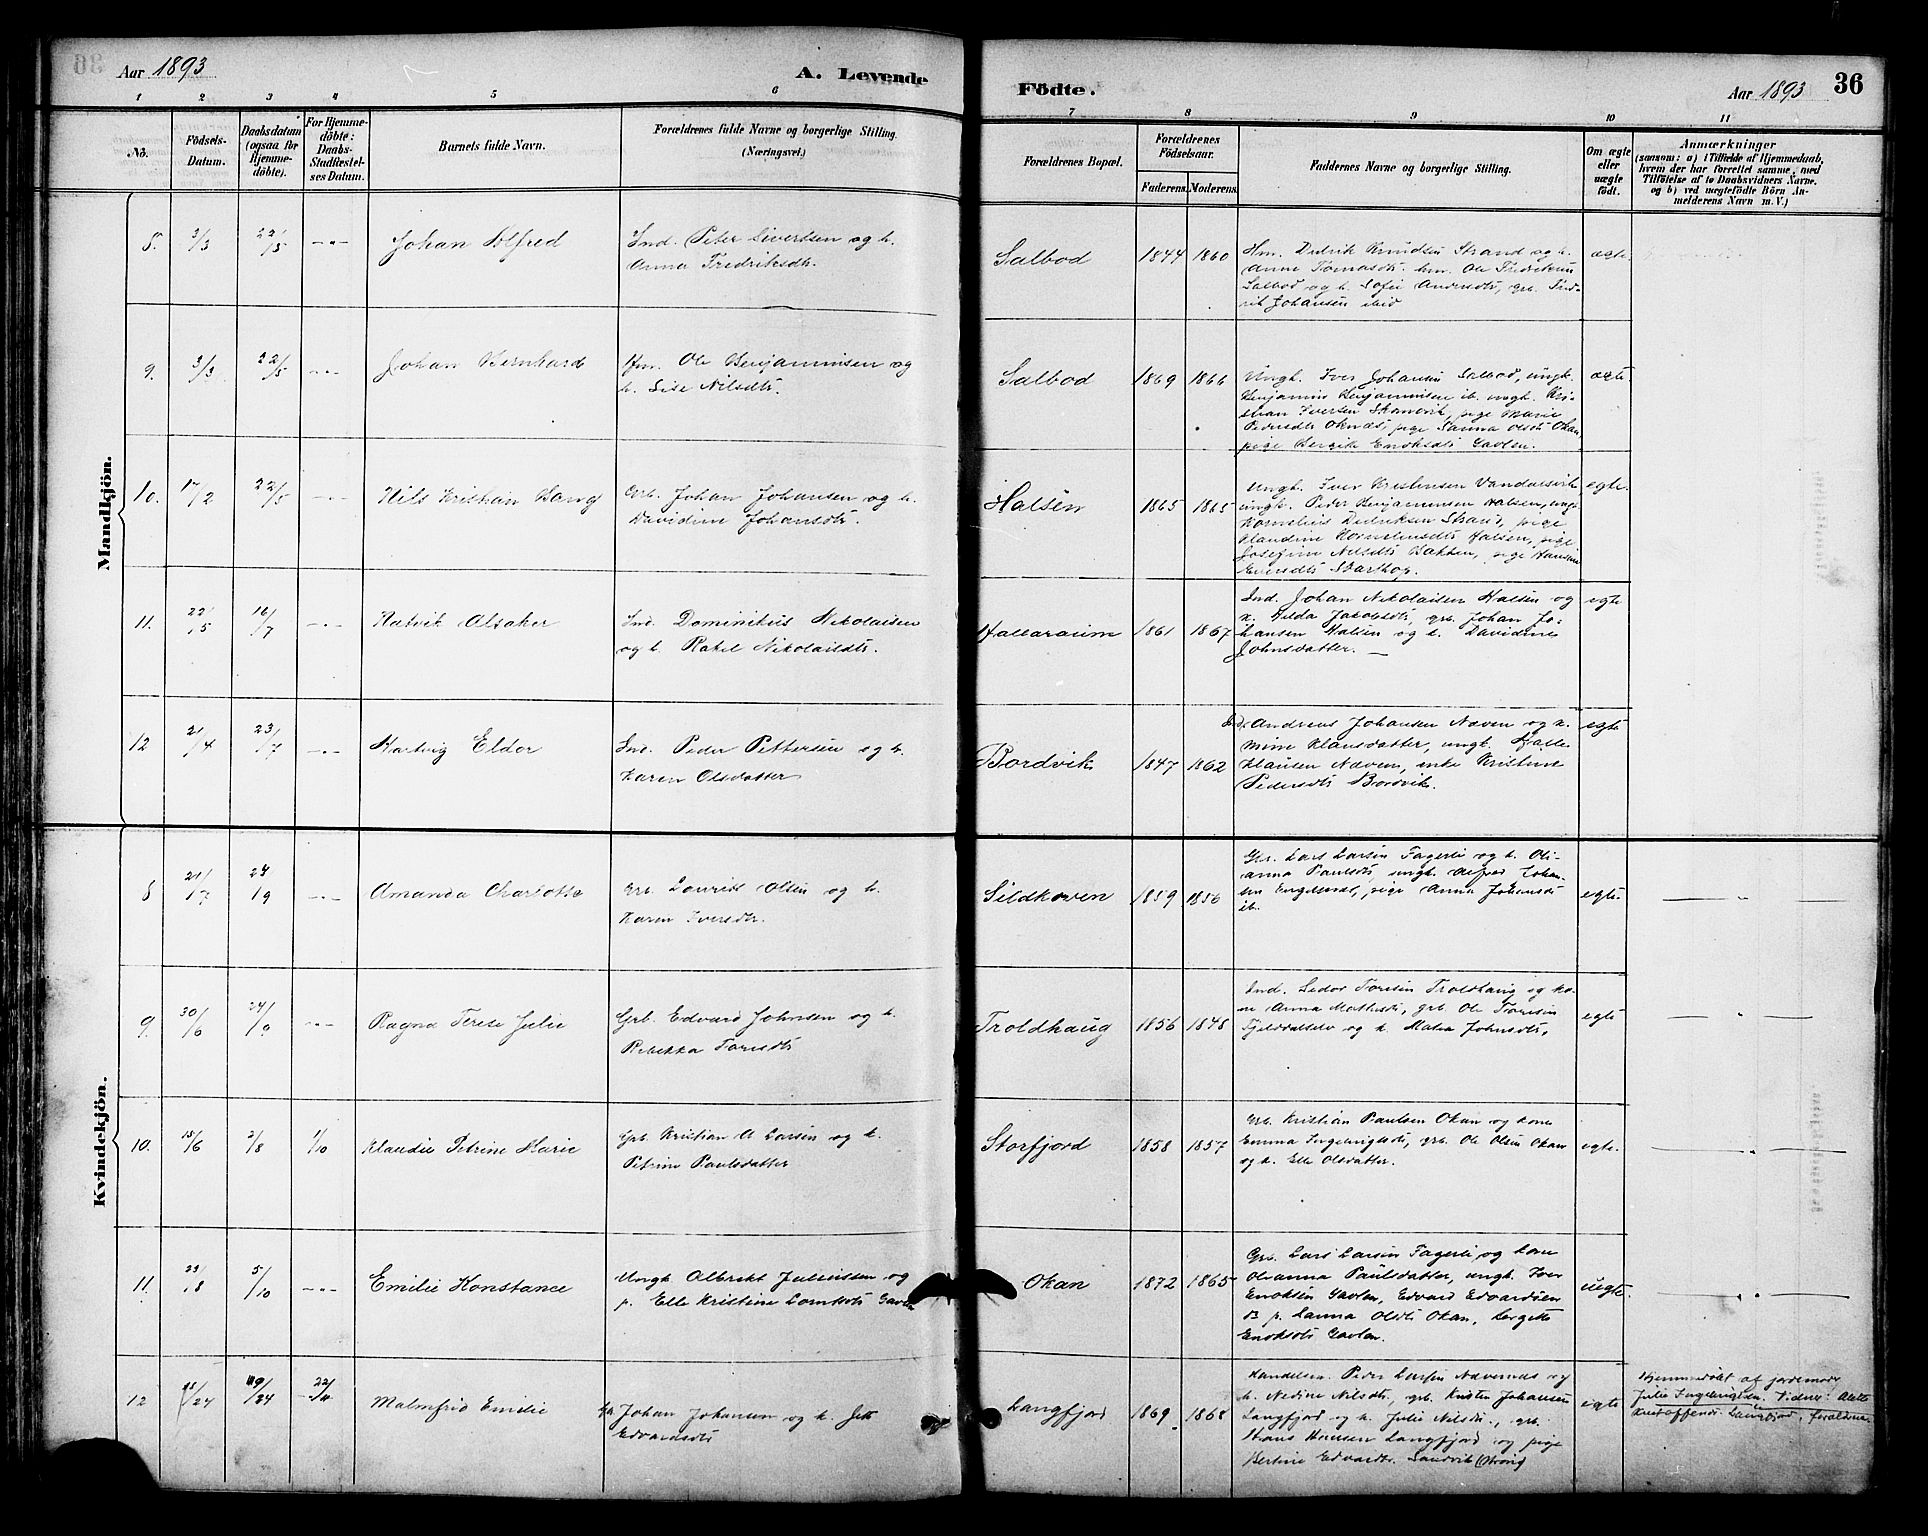 Aar 1893
A. Levende
Födte.
Aar 1893
36
1 2 3 4 5 6 7 8 9 10 11
No.
Födsels-
Datum.
Daabsdatum
(ogsaa for
Hjemme-
döbte).
For Hjemme-
döbte:
Daabs-
Stadfæstel-
ses Datum.
Barnets fulde Navn.
Forældrenes fulde Navne og borgerlige Stilling.
(Næringsvei.)
Forældrenes Bopæl.
Forældrenes
Födselsaar.
Faderens. Moderens.
Faddernes Navne og borgerlige Stilling.
Om ægte
eller
uægte
födt.
Anmærkninger
(saasom: a) i Tilfælde af Hjemmedaab,
hvem der har forrettet samme, med
Tilföielse af to Daabsvidners Navne,
og b) ved uægtefödte Börn An-
melderens Navn m. V.)
Mandkjön.
8. 3/3 22/5 -"- Johan Alfred
Ind. Peter Sivertsen og h.
Anna Fredriksdtr.
Salbod 1844 1860
Hm. Didrik Knudsen Strand og h.
Anne Tomasdtr. hm. Ole Fredriksen
Salbod og h. Sofie Andersdtr, grb. Fred-
rik Johansen ibid
ægte
9. 3/3 22/5 -"- Johan Bernhard
Hm. Ole Benjaminsen og
h. Lise Nilsdtr.
Salbod 1869 1866
Ungk. Iver Johansen Salbod, ungk.
Benjamin Benjaminsen ib. ungk. Kri-
stian Iversen Skanevik, pige Marie
Pedersdtr Oknæs, pige Sanna Olsdtr Okan,
pige Bergite Enoksdtr Gavlen.
ægte
10. 17/2 22/5 -"- Nils Kristian Bang
Grb. Johan Johansen og h.
Davidine Johansdtr.
Halsen 1865 1865
Ungk. Iver Kristensen Vandarsvik
ungk. Peder Benjaminsen Halsen, ungk.
Kornelius Didriksen Strand, pige
Klaudine Korneliusdtr Halsen, pige
Josefine Nilsdtr Bakken, pige Hansine
Eversdtr Skarthop.
egte.
11. 22/5 16/7 -"- Hatvik Alsaker
Ind. Dominikus Nikolaisen
og h. Rakel Nikolaisdtr.
Hallaraium 1861 1867
Ind. Johan Nikolaisen Halsen og
h. Hilda Jakobsdtr, grb. Johan Jo-
hansen Halsen og h. Davidine
Johnsdatter. —
egte
12 21/4 23/7 -"- Hartvig Eldor
Ind. Peder Pettersen og h.
Karen Olsdatter
Bordvik 1847 1862
Ind. Andreas Johansen Næven og h.
Mine Klausdatter, ungk.
Klausen Næven, enke Kristine
Pedersdtr Bordvik.
egte
Kvindekjön.
8 21/7 24/9 -"- Amanda Charlotte
Grb. Laurits Olsen og h.
Karen Iversdtr.
Sildkoven 1859 1856
Gbr. Lars Larsen Fagerli og h. Oli-
anna Paulsdtr, ungk. Alfred Johan-
sen Engelsnæs, pige Anna Johansdtr
ib.
egte. — " —
9. 30/6 24/9 -"- Ragna Terese Julie
Grb. Edvard Johnsen og h.
Rebekka Toresdtr
Troldhaug 1856 1848
Ind. Peder Toresen Troldhaug og ko-
ne Anna Mathisdtr, grb. Ole Toresen
Fjelddalselv og h. Matea Johnsdtr,
egte — " —
10. 15/6 2/8 1/10 Klaudie Petrine Marie
Grb. Kristian A Larsen og h.
Petrine Paulsdatter
Storfjord 1858 1857
Grb. Kristian Paulsen Okan og kone
Emma Ingebrigtsdtr, grb. Ole Olsen Okan
og h. Elle Olsdatter.
egte. — " —
11. 23/8 5/10 -"- Emilie Konstance
Ungk. Albrikt Juliussen og
p. Elle Kristine Lorntsdtr Gavlen
Okan 1872 1865
Grb. Lars Larsen Fagerli og kone
Olianna Paulsdatter, ungk. Iver
Enoksen Gavlen, Edvard Edvardsen
B p. Sanna Olsdtr Okan, Bergitte
Enoksdtr Gavlen.
uegte. — " —
12 Malmfrid Emilie
Johan Johansen og h.
Edvardsdtr
Langfjord 1869 1868
Handelsm. Peder Larsen Næverenæs og
h. Nedine Nilsdtr, grb. Kristen Johansen
Langfjord og h. Julie Nilsdtr., grb.
Hans Hansen Langfjord og pige
Bertine Edvardtr. Sandvik
egte
Hjemmedöbt af jordemor
Julie Ingebrigtsen. Vidner:
Kristoffersd. Langfjord, forældrene